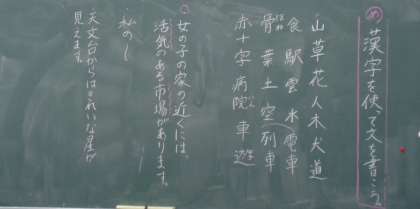 め 漢字を使って文を書こう。
山草花人木犬道
食駅雲水電車
骨葉土空列車
赤十字病院車遊
女の子の家の近くには、
活気のある市場があります。
私の
天文台からはきれいな星が
見えます。